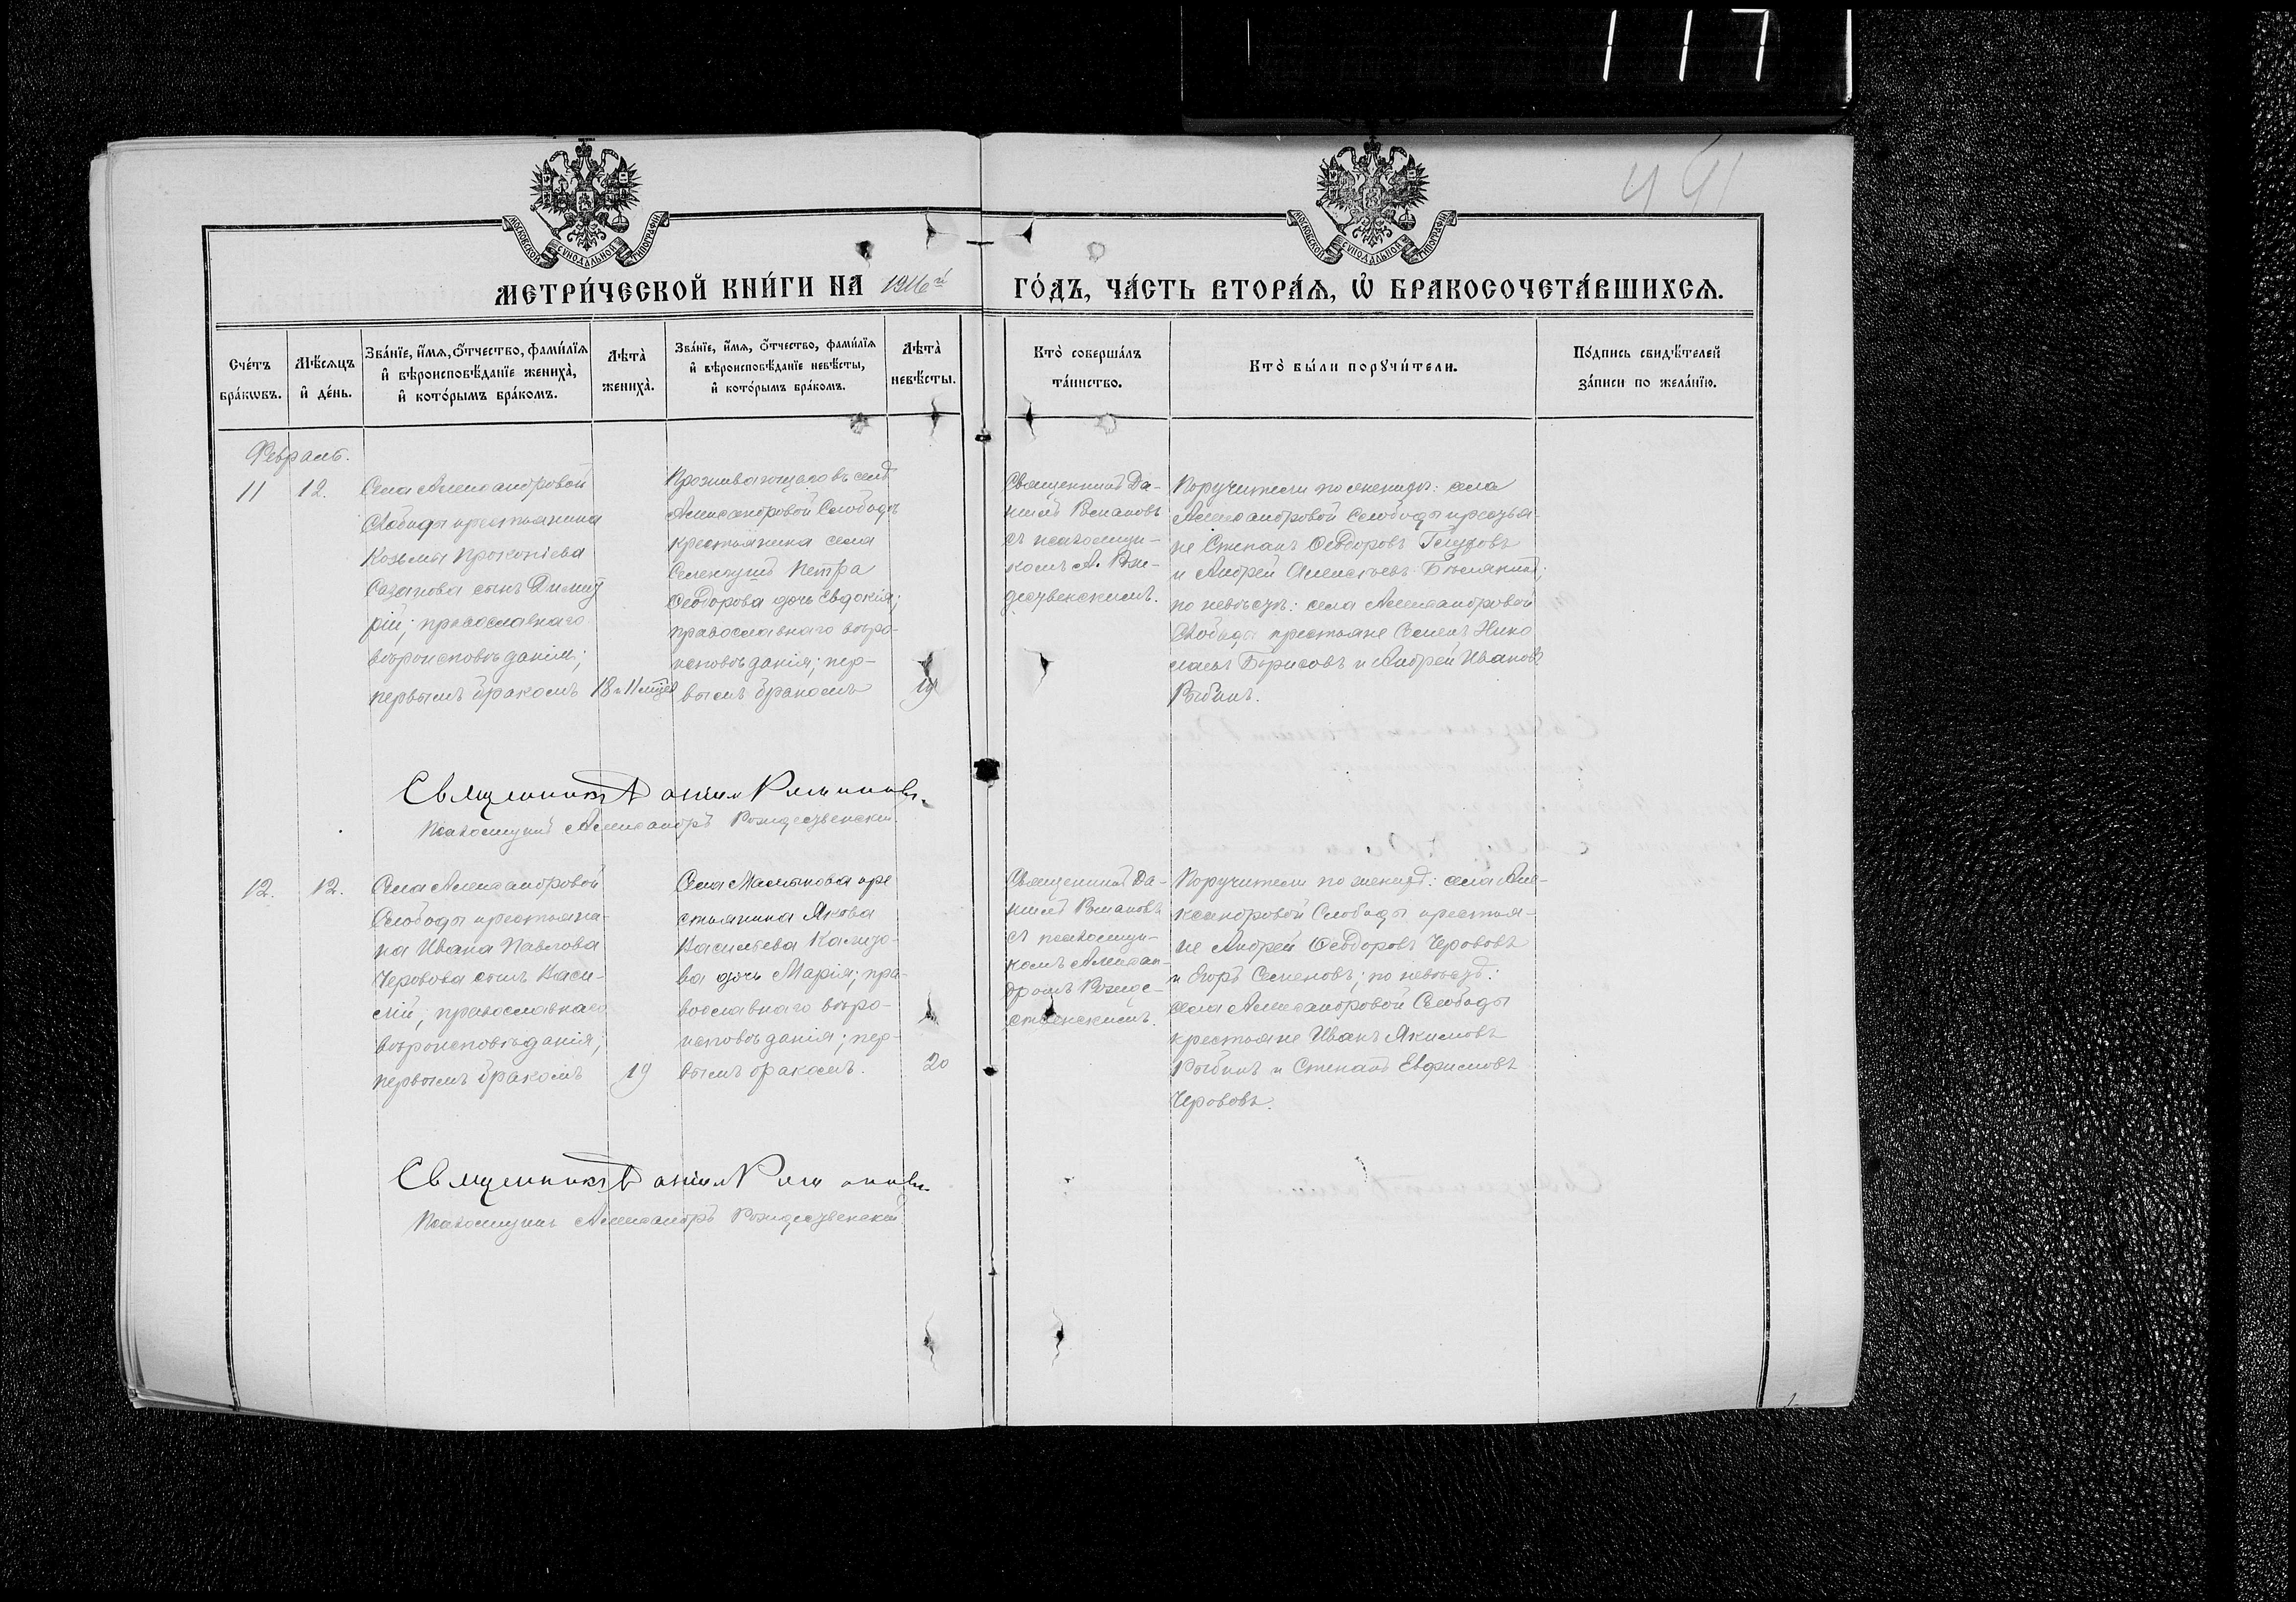 117
491
МОСКОВСКОЙ СѴНОДАЛЬНОЙ ТИПОГРАФІИ
МОСКОВСКОЙ СѴНОДАЛЬНОЙ ТИПОГРАФІИ
МЕТРИ́ЧЕСКОЙ КНИ́ГИ НА 1916й ГО́ДЪ, ЧА́СТЬ ВТОРА́Ѧ, Ѡ҆ БРАКОСОЧЕТА́ВШИХСѦ.
Сче́тъ
бра́кѡвъ.
Мѣ́сяцъ
и҆ де́нь.
Зва́нїе, и҆́мѧ, ѻ҆́тчество, фами́лїѧ
и҆ вѣроисповѣ́данїе жениха̀,
и҆ кото́рымъ бра́комъ.
Лѣта̀
жениха̀.
Зва́нїе, и҆́мѧ, ѻ҆́тчество, фами́лїѧ
и҆ вѣроисповѣ́данїе невѣ́сты,
и҆ кото́рымъ бра́комъ.
Лѣта̀
невѣ́сты.
Кто̀ соверша́лъ
та́инство.
Кто̀ бы́ли порꙋчи́тели.
По́дпись свидѣ́телей
за́писи по жела́нїю.
Февраль.
11
12.
Села Александровой
Слободы крестьянина
Козьмы Прокопіева
Сазанова сынъ Димит
рій; православнаго
вѣроисповѣданія;
первымъ бракомъ
18 и 11 мѣс
Проживающаго въ селѣ
Александровой Слободѣ
крестьянина села
Петра
Ѳеодорова дочь Евдокія;
православнаго вѣро-
исповѣданія; пер-
вымъ бракомъ
19
Священникъ Да-
ніилъ Романовъ
съ псаломщи-
комъ А. Рож-
дественскимъ.
Поручители по женихѣ: села
Александровой Слободы крестья-
не Степанъ Ѳеодоровъ
и Андрей Алексѣевъ
по невѣстѣ: села Александровой
Слободы крестьяне Семенъ Нико
лаевъ Борисовъ и Андрей Ивановъ
Рыбинъ.
Священникъ Даніилъ Романовъ.
Псаломщикъ Александръ Рождественскій.
12.
12.
Села Александровой
Слободы крестьяни-
на Ивана Павлова
Черовова сынъ Васи-
лій; православнаго
вѣроисповѣданія;
первымъ бракомъ
19
Села Маслыкова кре
стьянина Якова
Васильева
ва дочь Марія; пра-
вославнаго вѣро-
исповѣданія; пер-
вымъ бракомъ.
20
Священникъ Да-
ніилъ Романовъ
съ псаломщи-
комъ Алексан-
дромъ Рожде-
ственскимъ.
Поручители по женихѣ: села Але-
ксандровой Слободы крестья-
не Андрей Ѳеодоровъ Черововъ
и Егоръ Семеновъ; по невѣстѣ:
села Александровой Слободы
крестьяне Иванъ Якимовъ
Рыбинъ и Степанъ Евфимовъ
Черововъ.
Священникъ Даніилъ Романовъ
Псаломщикъ Александръ Рождественскій